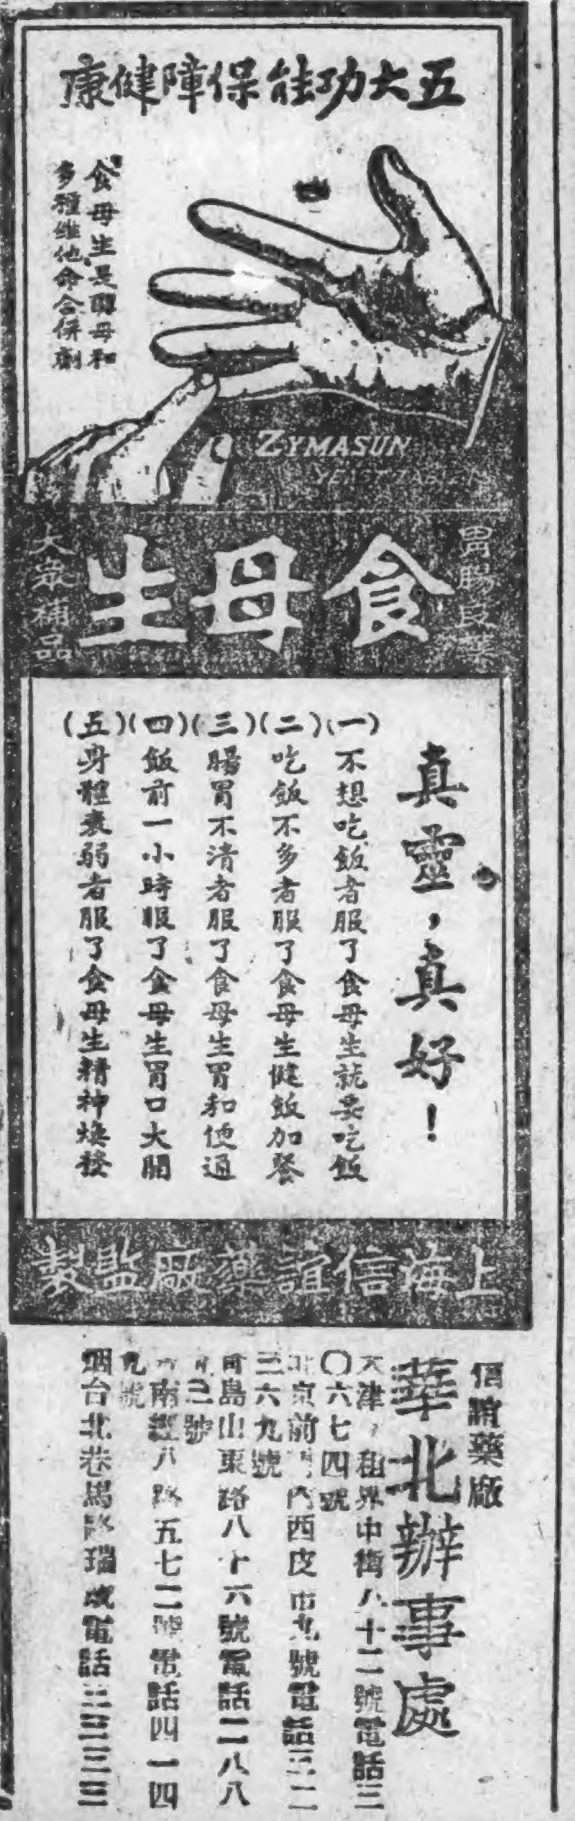 五大功能保障健康
食母生是酵母和
多種維他命合併劑
ZYMASUN
YEAST TABLETS
胃腸良藥
食母生
大眾補品
真靈，真好！
(一)不想吃飯者服了食母生就要吃飯
(二)吃飯不多者服了食母生健飯加餐
(三)腸胃不清者服了食母生胃和便通
(四)飯前一小時服了食母生胃口大開
(五)身體衰弱者服了食母生精神煥發
上海信誼藥廠監製
信誼藥廠
華北辦事處
天津 租界中街八十二號電話三
〇六七四號
北京前門內西皮市九號電話三二
三六九號
青島山東路八十六號電話二八八
三號
濟南經八路五七二號電話四一四
九號
烟台北巷馬路瑞成電話三三三三